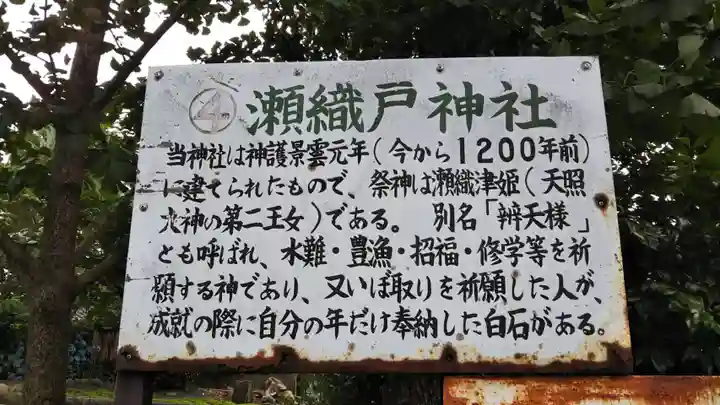 ④瀬織戸神社
当神社は神護景雲元年(今から1200年前)
に建てられたもので、祭神は瀬織津姫(天照
大神の第二王女)である。 別名「辨天様」
とも呼ばれ、水難・豊漁・招福・修学等を祈
願する神であり、又いぼ取りを祈願した人が、
成就の際に自分の年だけ奉納した白石がある。